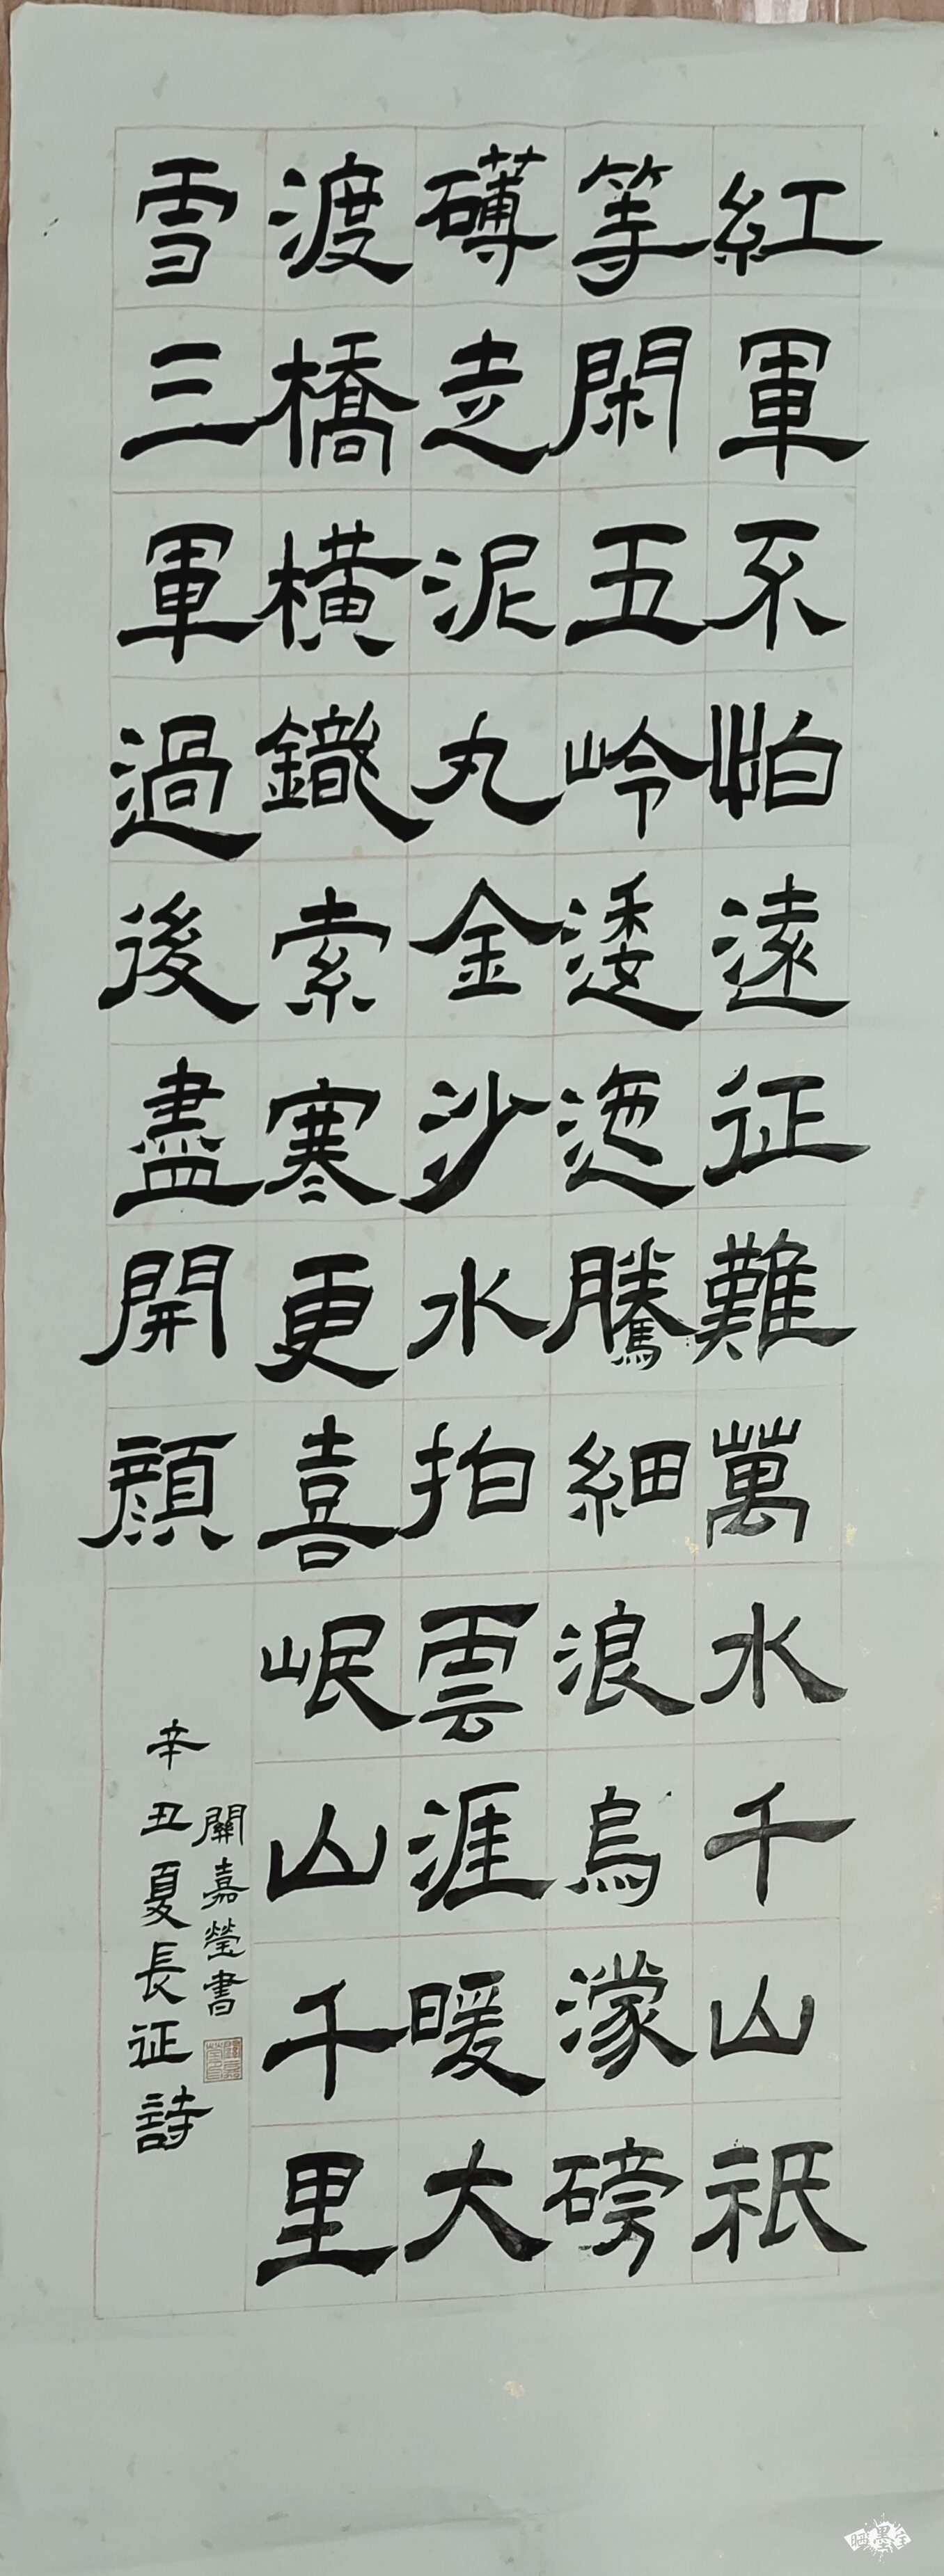 紅軍不怕遠征難萬水千山祇
等閑五岭逶迤騰細浪烏濛磅
礴走泥丸金沙水拍雲涯暖大
渡橋橫鐵索寒更喜岷山千里
雪三軍過後盡開顏
關嘉瑩書
辛丑夏長征詩
晒墨宝